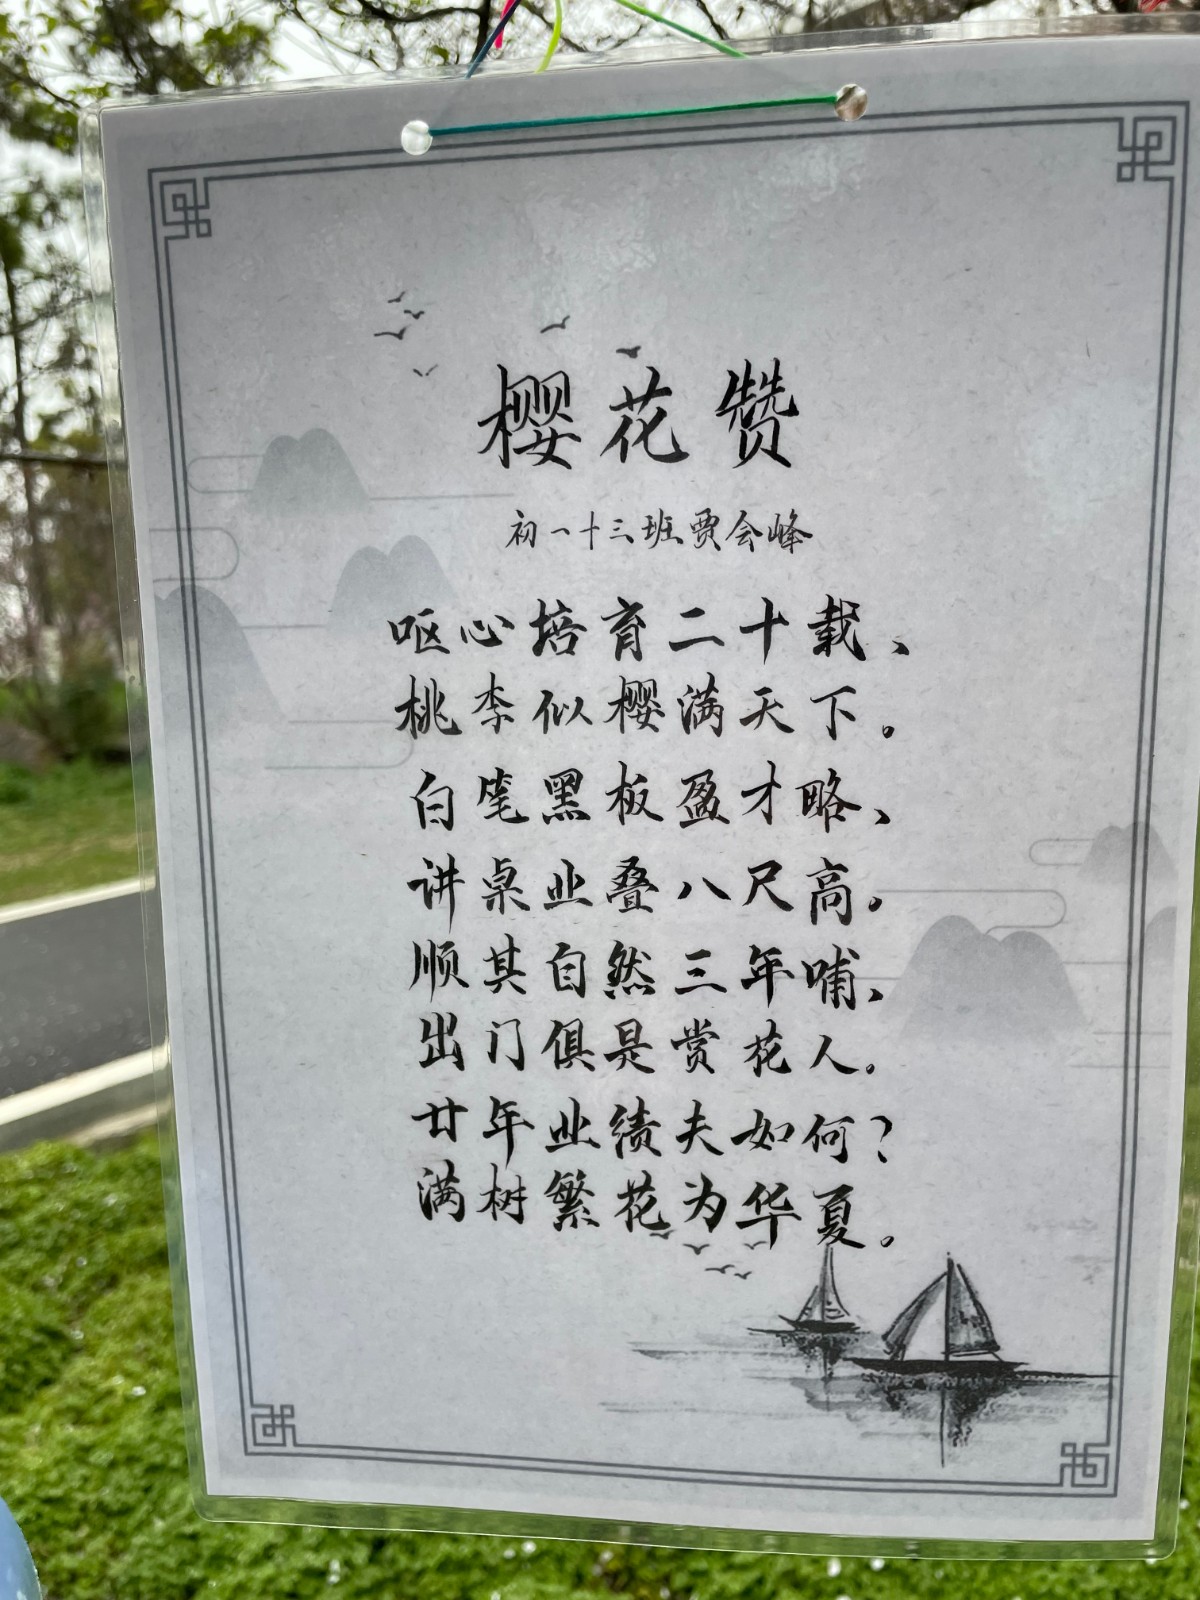 樱花赞
初一十三班贾会峰
呕心培育二十载、
桃李似樱满天下。
白笔黑板盈才略、
讲桌业叠八尺高。
顺其自然三年哺、
出门俱是赏花人.
廿年业绩夫如何?
满树繁花为华夏。